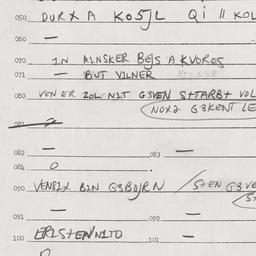 050 DURX A KO5JL QI 11 KOL
060 —
070 IN MINSKER BEJS A KVOROS
071 — BUT VILNER VILNER
080 VEN ER ZOL NIT G3VEN S+TARB+ VOL
(NOX2 G3KENT LE
081 2
082 — 083 —
084 0
090 VENBIX BIN G3BOJRN /S+EN G3VE
091 — 092 —
100 ERIS+ENNITO 101 —